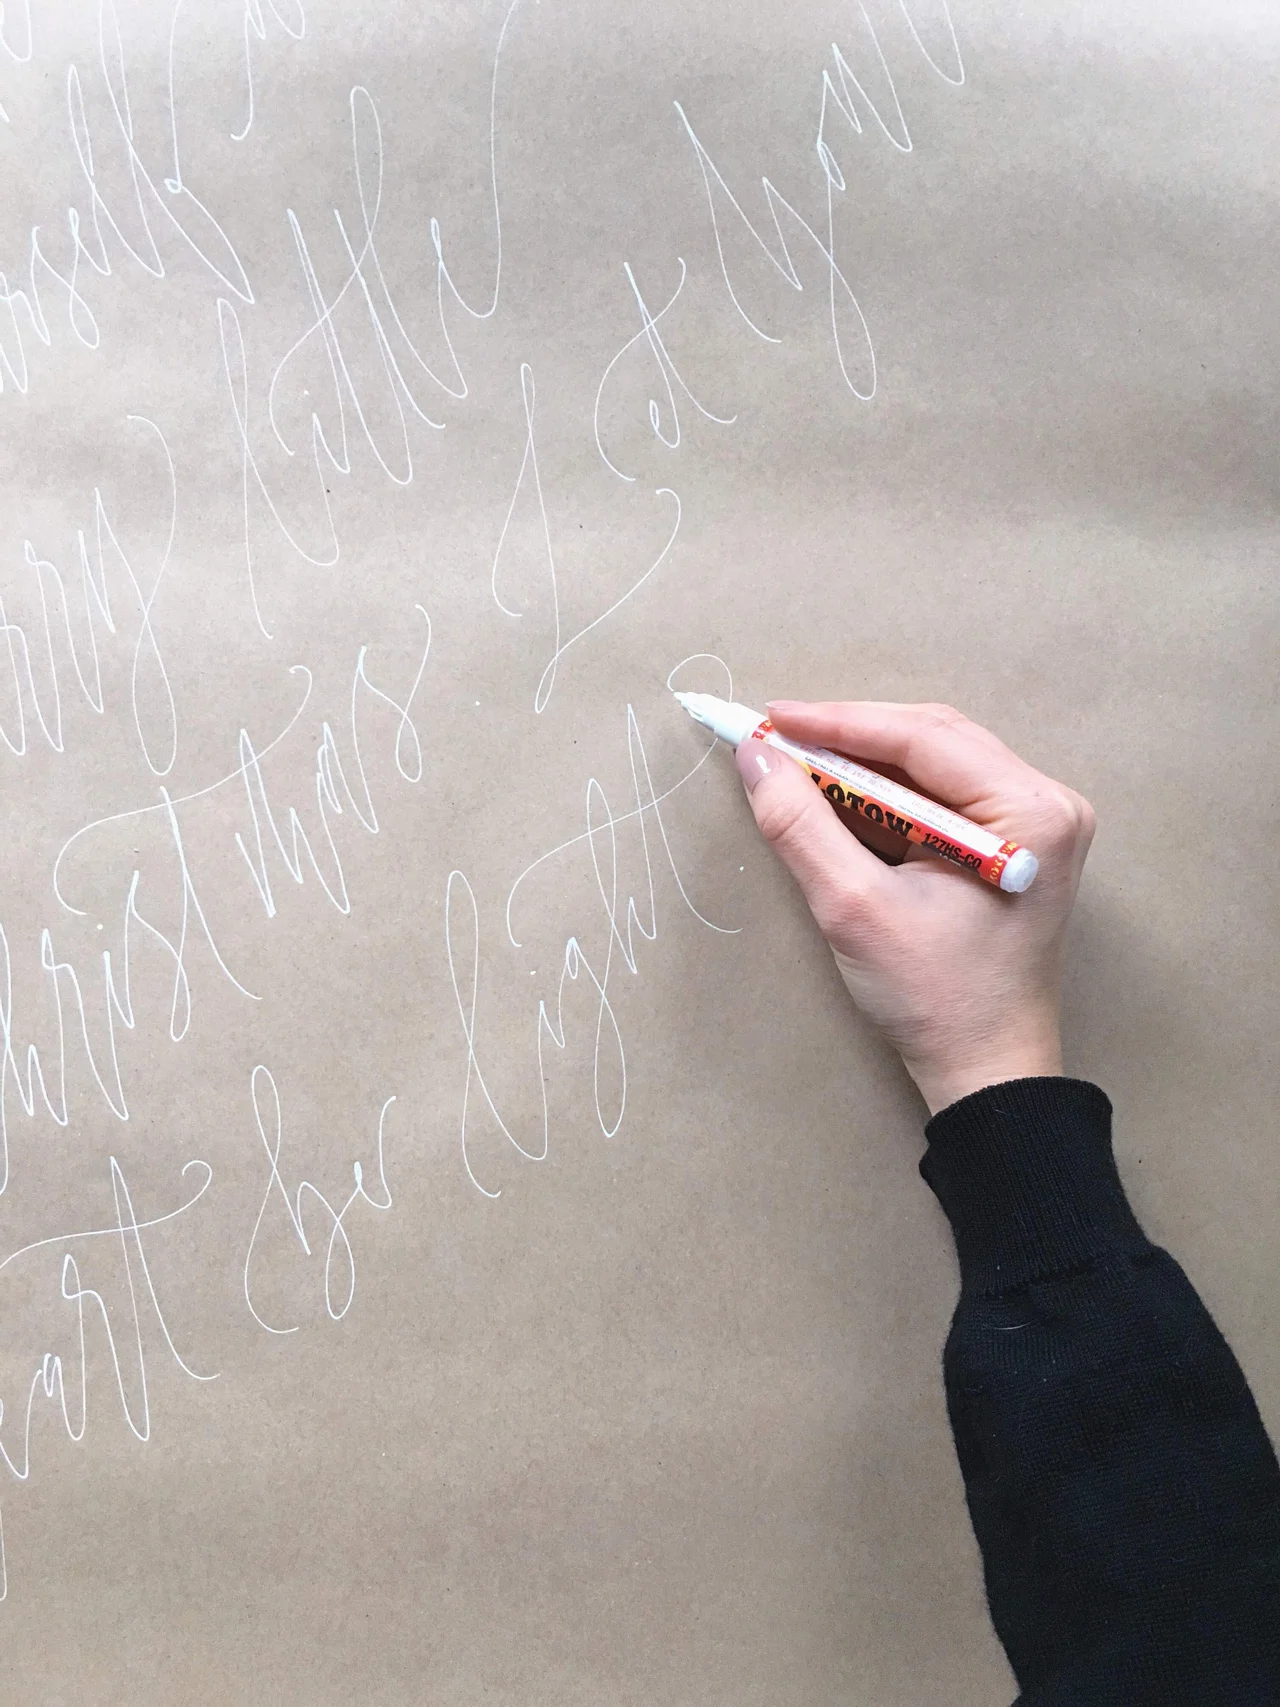 rself a
rry little
hristmas. Let your
eart be light
LOTOW™ 127HS-CO